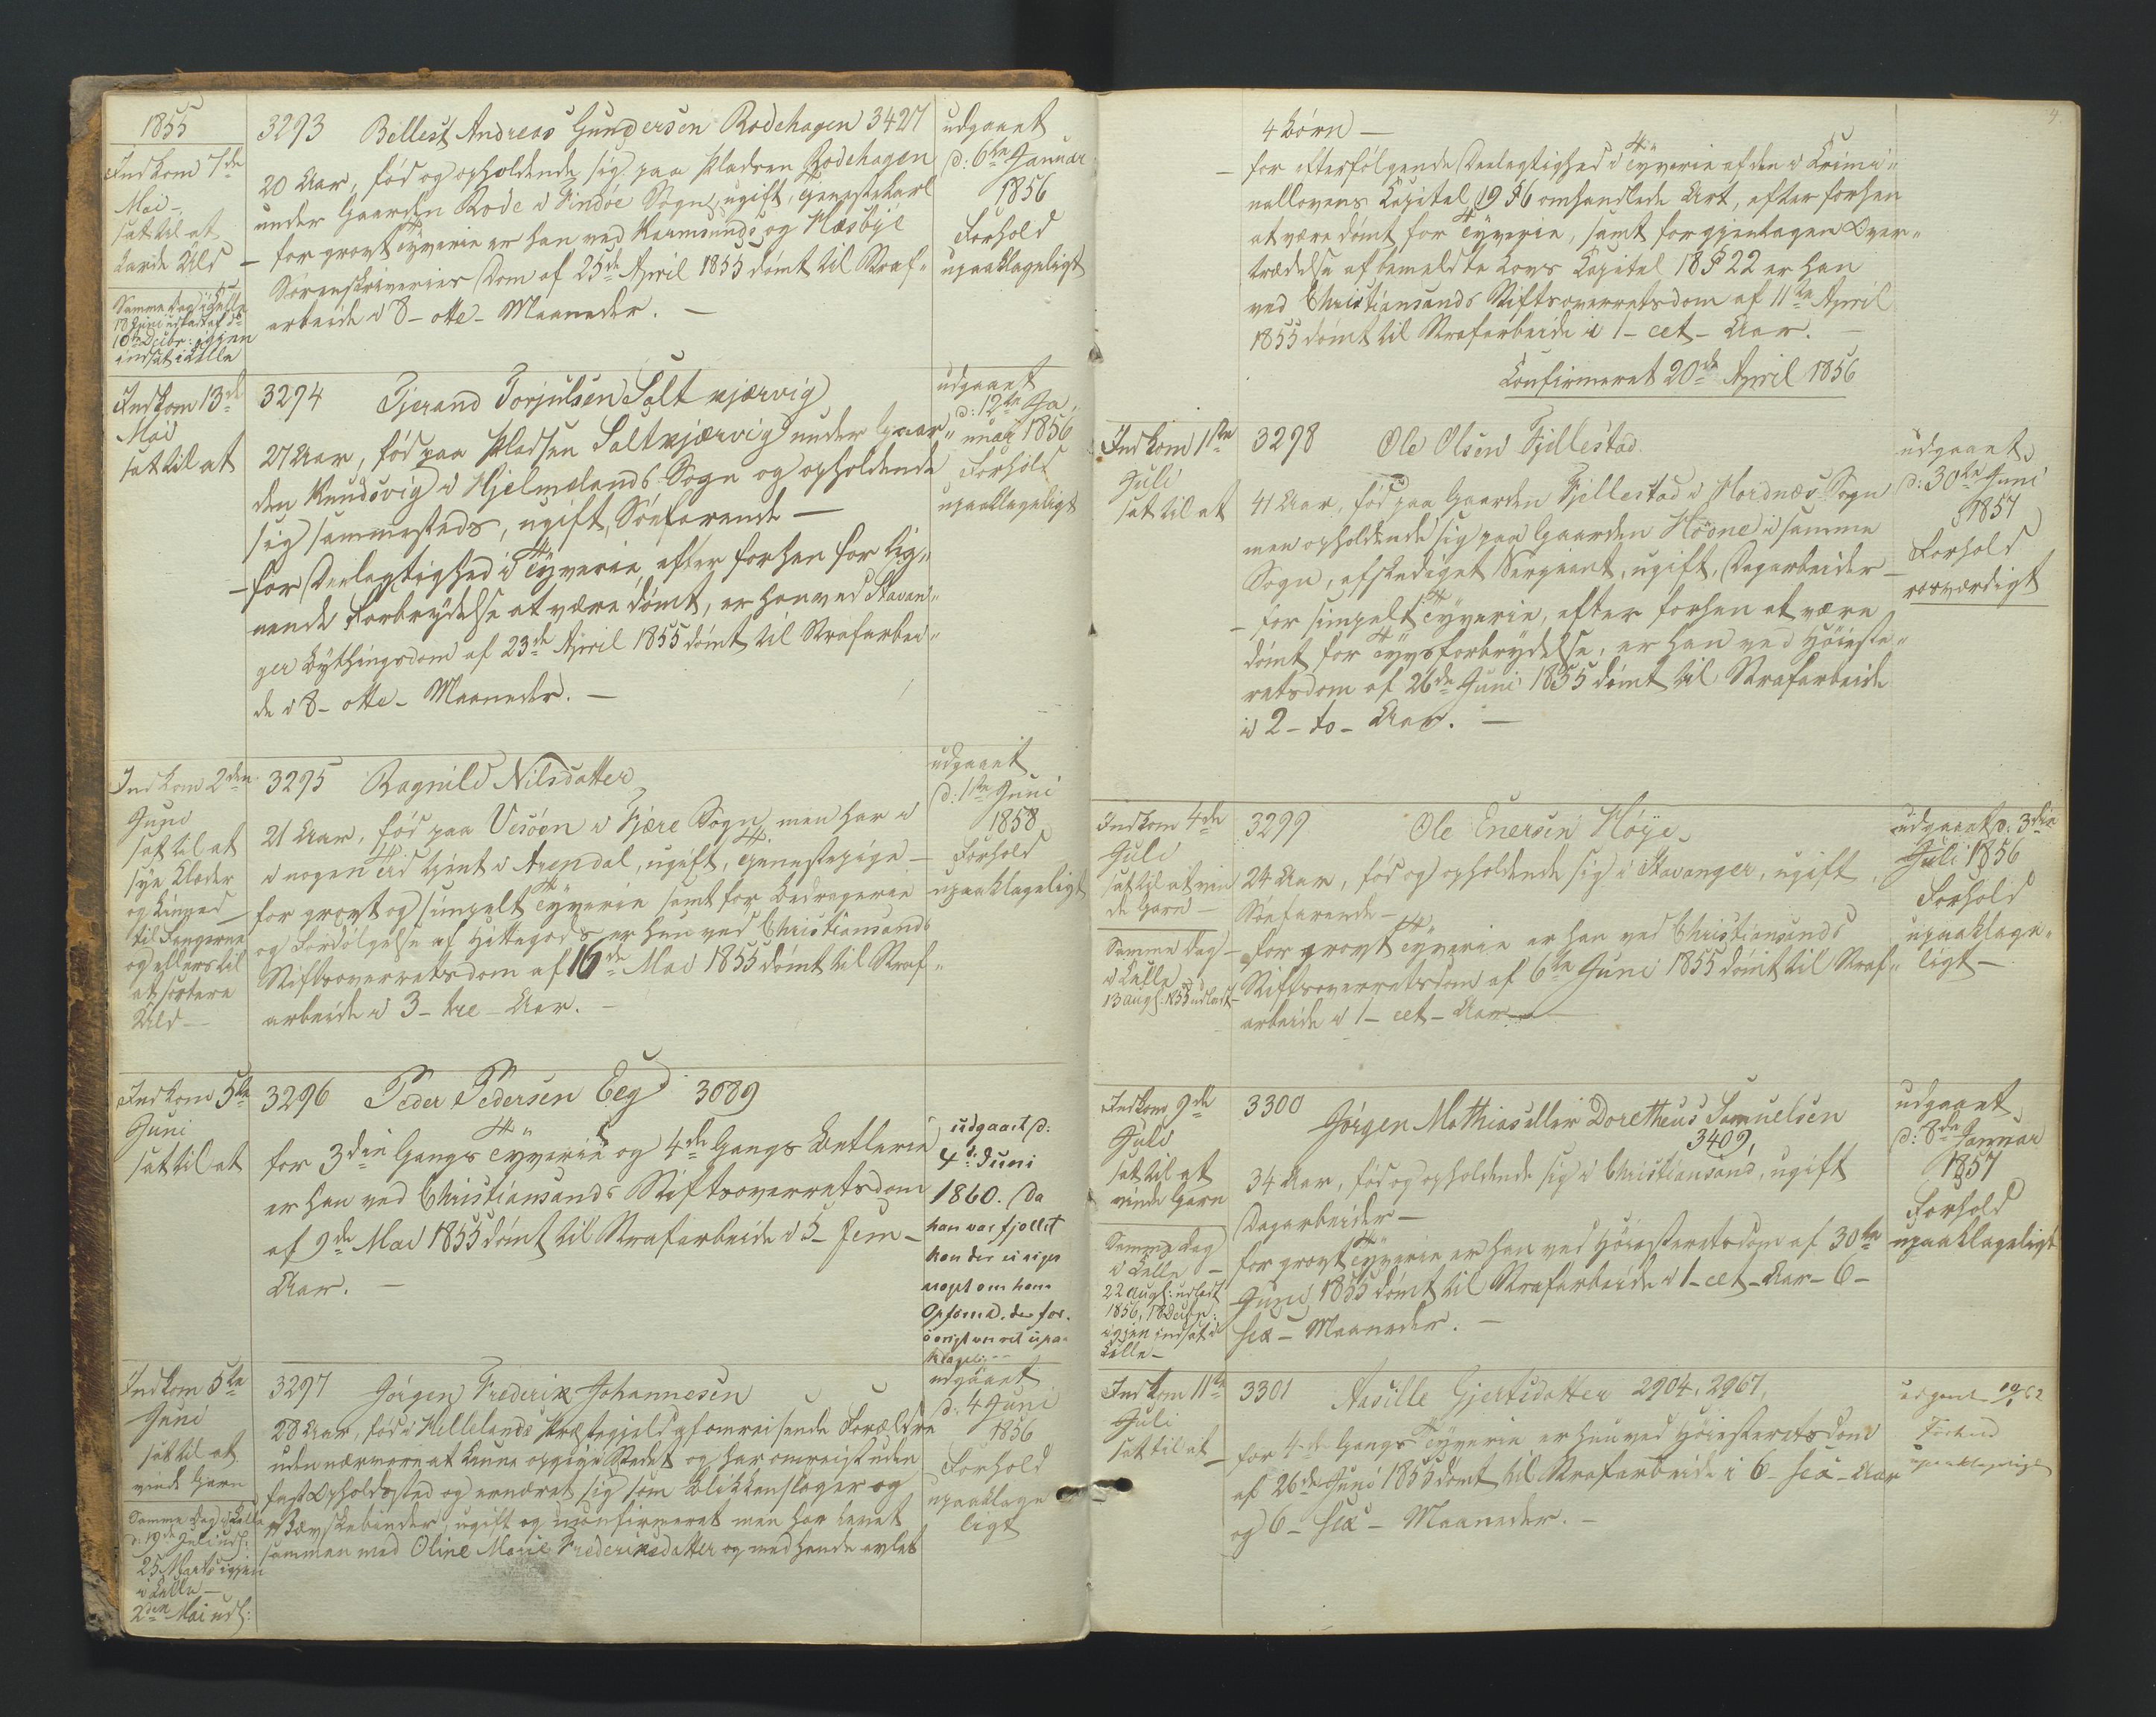 1855
Indkom 7de
Mai
sat til at
karde Uld
Samme Dag i Celle
18 Juni udladt af do
10de Decbr: igjen
indsat i Celle
3293 Bellest Andreas Gundersen Rodehagen 3427
20 Aar, fød og opholdende sig paa Pladsen Rodehagen
under Gaarden Rode i Findøe Sogn, ugift, Tjenestekarl
– for grovt Tyverie er han ved Karmsunds og Hesbye
Sorenskriveries Dom af 25de April 1855 dømt til Straf„
arbeide i 8 – otte – Maaneder. –
udgaaet
d. 6te Januar
1856
Forhold
upaaklageligt
Indkom 13de
Mai
sat til at
3294 Tjerand Torjulsen Saltkjærvig
27 Aar, fød paa Pladsen Saltkjærvig under Gaar„
den Knudsvig i Hjelmelands Sogn og opholdende
sig sammesteds, ugift, Søefarende –
– for Deelagtighed i Tyverie efter forhen for lig„
nende Forbrydelse at være dømt, er han ved Stavan„
ger Bythingsdom af 23de April 1855 dømt til Strafarbei„
de i 8 – otte – Maaneder. –
udgaaet
d: 12te Ja„
nuar 1856
Forhold
upaaklageligt
Indkom 2den
Juni
sat til at
sye Klæder
og Linned
til Fangerne
og ellers til
at sortere
Uld –
3295 Ragnild Nilsdatter
21 Aar, fød paa Vesøen i Fjære Sogn, men har i
i nogen Tid tjent i Arendal, ugift, Tjenestepige –
for grovt og simpelt Tyverie samt for Bedragerie
og Fordølgelse af Hittegods er hun ved Christiansands
Stiftsoverretsdom af 16de Mai 1855 dømt til Straf„
arbeide i 3 – tre – Aar. –
udgaaet
d: 1ste Juni
1858
Forhold
upaaklageligt
Indkom 5te
Juni
sat til at
3296 Peder Pedersen Eeg 3089
for 3die Gangs Tyverie og 4de Gangs Betlerie
er han ved Christiansands Stiftsoverretsdom
af 9de Mai 1855 dømt til Strafarbeide i 5 – fem –
Aar. –
udgaaet d:
4d: Juni
1860. Da
han var fjollet
kan der ei siges
noget om hans
Opførsel, der for„
øvrigt var upaa
klagelig
Indkom 5te
Juni
sat til at
vinde Garn
Samme Dag i Celle
d. 19de Juli uds:
25 Marts igjen
i Celle –
2den Mai uds:
3297 Jørgen Frederik Johannesen
28 Aar, fød i Hellelands Præstegjeld af omreisende Forældre
uden nærmere at kunne opgive Stedet og har omreist uden
fast Opholdssted og ernæret sig som Blikkenslager og
Bævskebinder, ugift og uconfirmeret men har levet
sammen med Oline Marie Frederiksdatter og med hende avlet
udgaaet
d. 4 Juni
1856
Forhold
upaaklage
ligt
4.
4 Børn –
– for efterfølgende Deelagtighed i Tyverie af den i Krimi„
nallovens Capitel 19 § 6 omhandlede Art, efter forhen
at være dømt for Tyverie, samt for gjentagen Over„
trædelse af bemeldte Lovs Capitel 18 § 22 er han
ved Christiansands Stiftsoverretsdom af 11te April
1855 dømt til Strafarbeide i 1 – eet – Aar. –
Confirmeret 20de April 1856
Indkom 1ste
Juli
sat til at
3298 Ole Olsen Fjellestad
41 Aar, fød paa Gaarden Fjellestad i Hordnæs Sogn
men opholdende sig paa Gaarden Høvne i samme
Sogn, afskediget Sergeant, ugift, Dagarbeider –
– for simpelt Tyverie, efter forhen at være
dømt for Tyvsforbrydelse, er han ved Høieste„
retsdom af 26de Juni 1855 dømt til Strafarbeide
i 2 – to – Aar. –
udgaaet
d: 30te Juni
1857
Forhold
rosværdigt
Indkom 4de
Juli
sat til at vin
de Garn –
Samme Dag
i Celle
13 Augs: 1855 udladt
3299 Ole Enersen Høye
24 Aar, fød og opholdende sig i Stavanger, ugift,
Søefarende –
– for grovt Tyverie er han ved Christiansands
Stiftsoverretsdom af 6te Juni 1855 dømt til Straf„
arbeide i 1 – eet – Aar –
udgaaet d: 3die
Juli 1856
Forhold
upaaklage„
ligt –
Indkom 9de
Juli
sat til at
vinde Garn
Samme Dag
i Celle –
22 Augs: udladt
1856, 18 Decbr:
igjen indsat i
Celle –
3300 Jørgen Mathias eller Doretheus Samuelsen
3409,
34 Aar, fød og opholdende sig i Christiansand, ugift
Dagarbeider –
for grovt Tyverie er han ved Høiesteretsdom af 30te
Juni 1855 dømt til Strafarbeide i 1 – eet – Aar – 6 –
sex – Maaneder. –
udgaaet
d: 8de Januar
1857
Forhold
upaaklageligt
Indkom 11te
Juli
sat til at
3301 Aasille Gjertsdatter 2904, 2967,
– for 4de Gangs Tyverie er hun ved Høiesteretsdom
af 26de Juni 1855 dømt til Strafarbeide i 6 – sex – Aar
og 6 – sex – Maaneder. –
udgaaet
Forhold
upaaklageligt